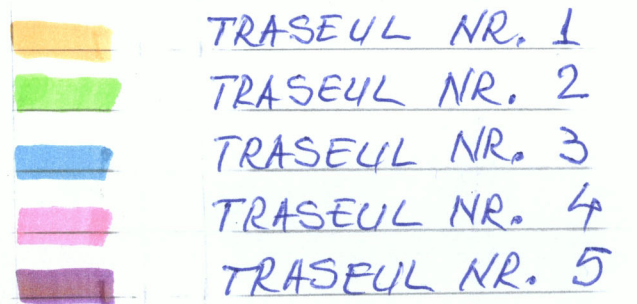 TRASEUL NR. 1
TRASEUL NR. 2
TRASEUL NR. 3
TRASEUL NR. 4
TRASEUL NR. 5